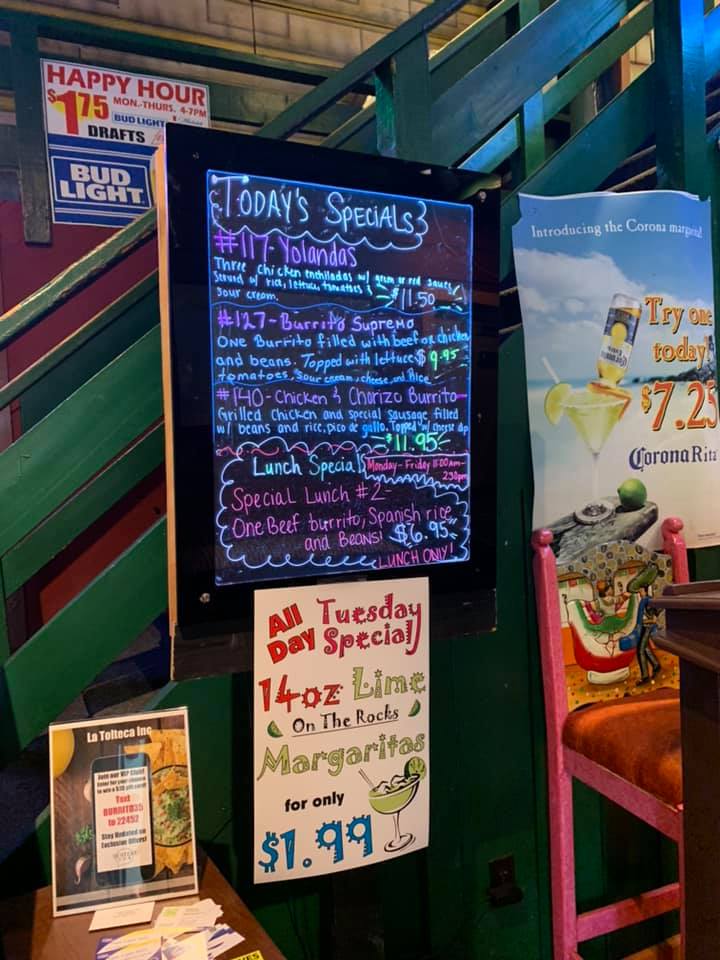 HAPPY HOUR
$1.75 MON.-THURS. 4-7PM
BUD LIGHT
DRAFTS
BUD
LIGHT
TODAY'S SPECIALS
#117-Yolandas
Three chicken enchiladas w/ green or red sauce
Served w/ rice, lettuce, tomatoes
Sour cream. $11.50
#127-Burrito Supremo
One Burrito filled with beef or chicken
and beans. Topped with lettuce $9.95
tomatoes, sour cream, cheese, and Rice
#140-Chicken & Chorizo Burrito
Grilled chicken and special sausage filled
w/ beans and rice, pico de gallo. Topped w/ cheese dip
$11.95
Lunch Specials Monday-Friday 11:00am-
2:30pm
Special Lunch #2-
One Beef burrito, Spanish rice
and Beans! $6.95
LUNCH ONLY!
Introducing the Corona margarita!
Try one
today!
$7.25
Corona Rita
All Day Tuesday Special
14oz Lime
On The Rocks
Margaritas
for only
$1.99
La Tolteca Inc
Join our VIP Club!
Text
BURRITO35
to 22452
Stay Updated on
Exclusive Offers!